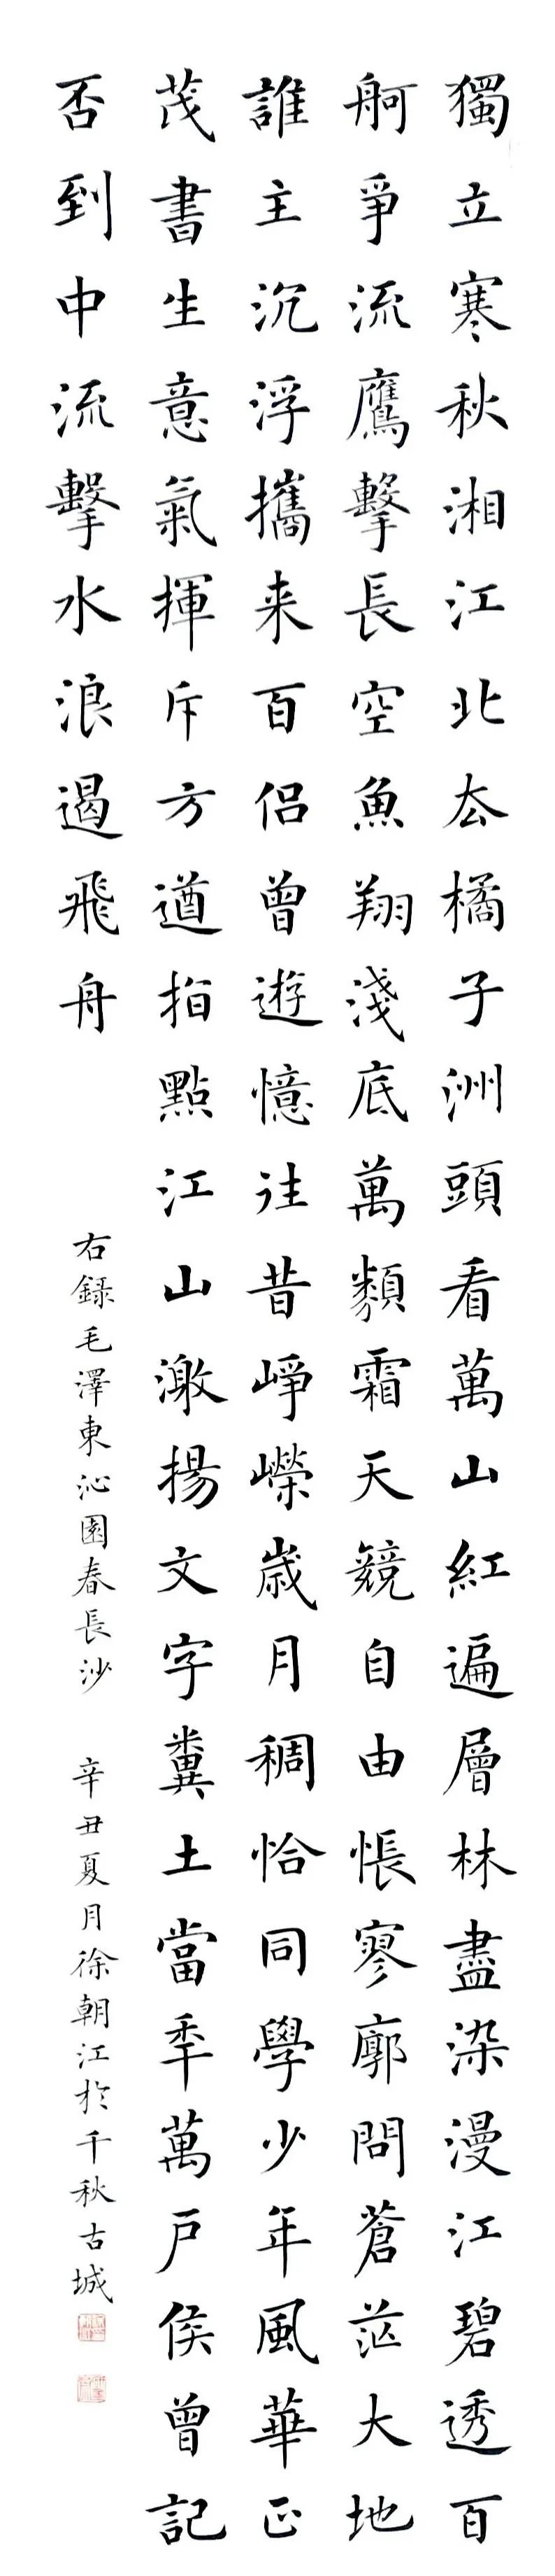 獨立寒秋湘江北厺橘子洲頭看萬山紅遍層林盡染漫江碧透百
舸爭流鷹擊長空魚翔淺底萬類霜天競自由悵寥廓問蒼茫大地
誰主沉浮攜来百侣曾遊憶往昔崢嶸歲月稠恰同學少年風華正
茂書生意氣揮斥方遒指點江山激揚文字糞土當秊萬戶侯曾記
否到中流擊水浪遏飛舟
右錄毛澤東沁園春長沙 辛丑夏月徐朝江於千秋古城